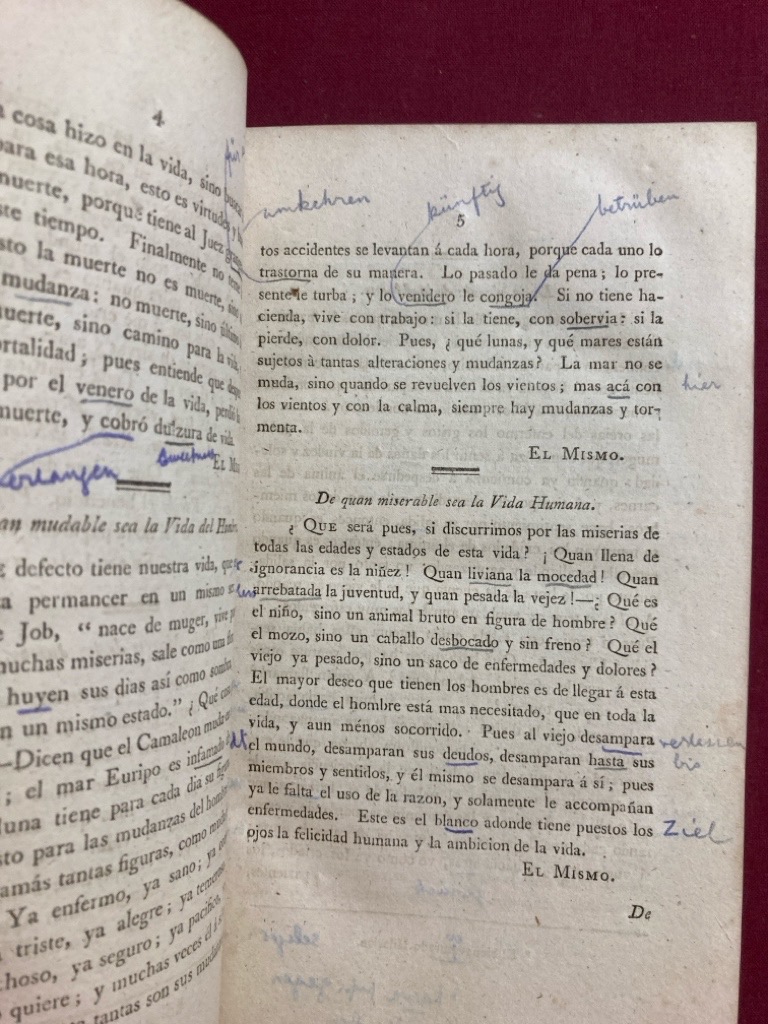 4
cosa hizo en la vida, sino
para esa hora, esto es virtudes
muerte, porque tiene al Juez
tiempo. Finalmente no
la muerte no es muerte,
mudanza: no muerte, sino
sino camino para la
pues entiende que
por el venero de la vida,
muerte, y cobró dulzura de vida.
sweetness
EL
erlangen
mudable sea la Vida del
defecto tiene nuestra vida,
permancer en un mismo
Job, “ nace de muger, vive
muchas miserias, sale como una
huyen sus dias así como sombra
un mismo estado.” ¿ Qué
—Dicen que el Camaleon muda
; el mar Euripo es infamado
luna tiene para cada dia su
para las mudanzas del hombre
tantas figuras, como
Ya enfermo, ya sano; ya
triste, ya alegre; ya
ya seguro; ya pacífico,
quiere; y muchas veces
tantas son sus
umkehren
künftig
betrüben
5
tos accidentes se levantan á cada hora, porque cada uno lo
trastorna de su manera. Lo pasado le da pena; lo pre-
sente le turba; y lo venidero le congoja. Si no tiene ha-
cienda, vive con trabajo: si la tiene, con sobervia: si la
pierde, con dolor. Pues, ¿ qué lunas, y qué mares están
sujetos à tantas alteraciones y mudanzas? La mar no se
muda, sino quando se revuelven los vientos; mas acá con hier
los vientos y con la calma, siempre hay mudanzas y tor-
menta.
EL MISMO.
De quan miserable sea la Vida Humana.
¿ QUE será pues, si discurrimos por las miserias de
todas las edades y estados de esta vida? ¡ Quan llena de
ignorancia es la niñez! Quan liviana la mocedad! Quan
arrebatada la juventud, y quan pesada la vejez!—¿ Qué es
el niño, sino un animal bruto en figura de hombre? Qué
el mozo, sino un caballo desbocado y sin freno? Qué el
viejo ya pesado, sino un saco de enfermedades y dolores?
El mayor deseo que tienen los hombres es de llegar á esta
edad, donde el hombre está mas necesitado, que en toda la
vida, y aun ménos socorrido. Pues al viejo desampara verlassen
el mundo, desamparan sus deudos, desamparan hasta sus bis
miembros y sentidos, y él mismo se desampara á sí; pues
ya le falta el uso de la razon, y solamente le accompañan
enfermedades. Este es el blanco adonde tiene puestos los Ziel
ojos la felicidad humana y la ambicion de la vida.
EL MISMO.
De